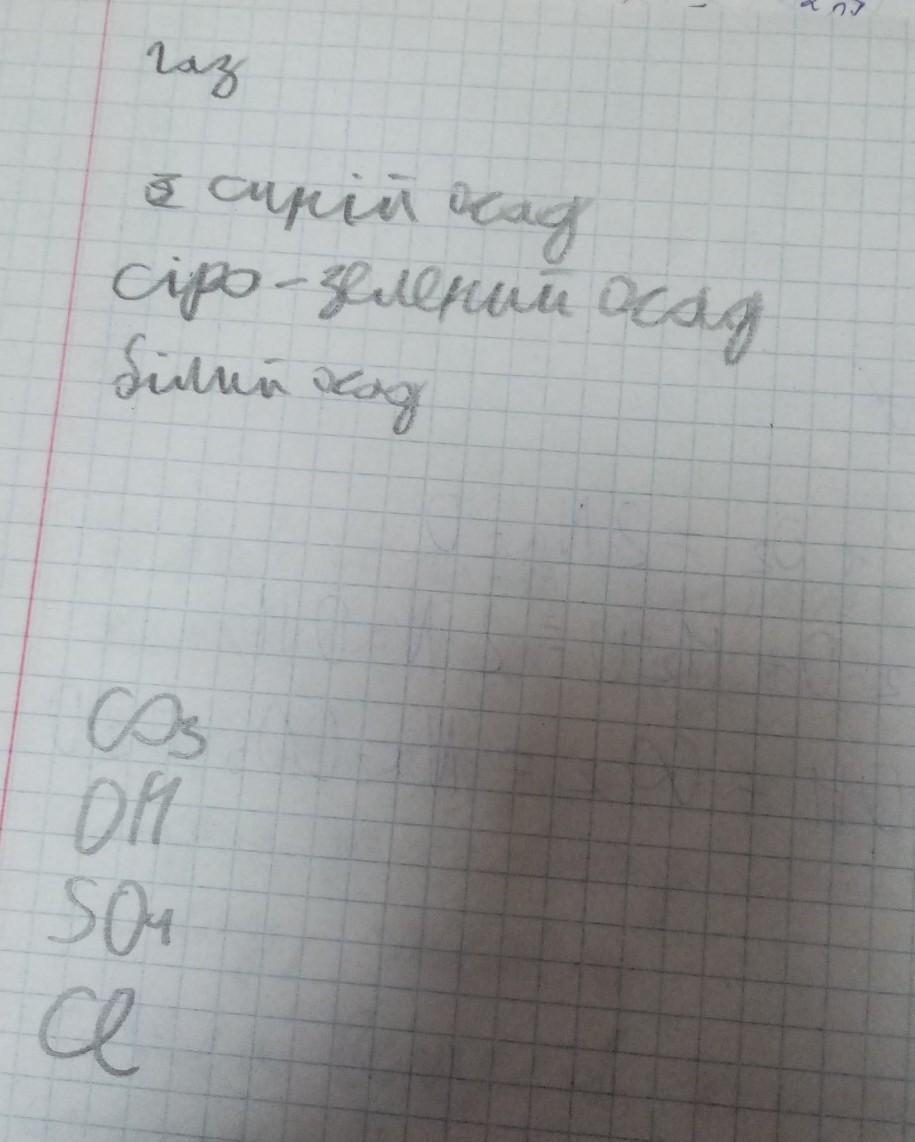 газ
синій осад
сіро-зелений осад
білий осад
CO₃
OH
SO₄
Cl